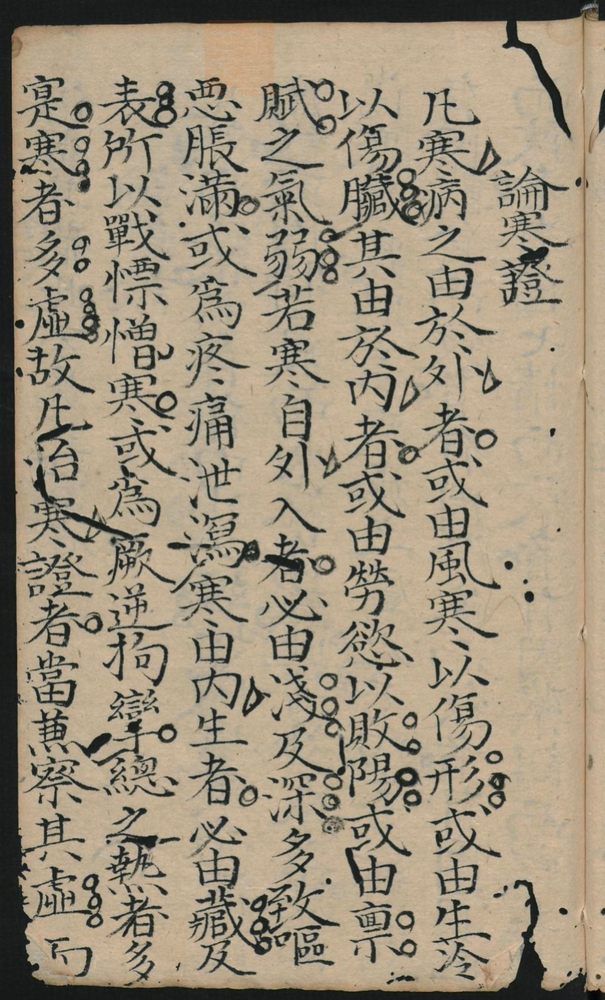 論寒證
凡寒病之由於外者或由風寒以傷形或由生冷
以傷臟其由於內者或由勞慾以敗陽或由禀
賦之氣弱若寒自外入者必由淺及深多致嘔
悪脹滿或爲疼痛泄瀉寒由內生者必由藏及
表所以戰慄憎寒或爲厥逆拘攣總之熱者多
寔寒者多虛故凡治寒證者當兼察其虛而